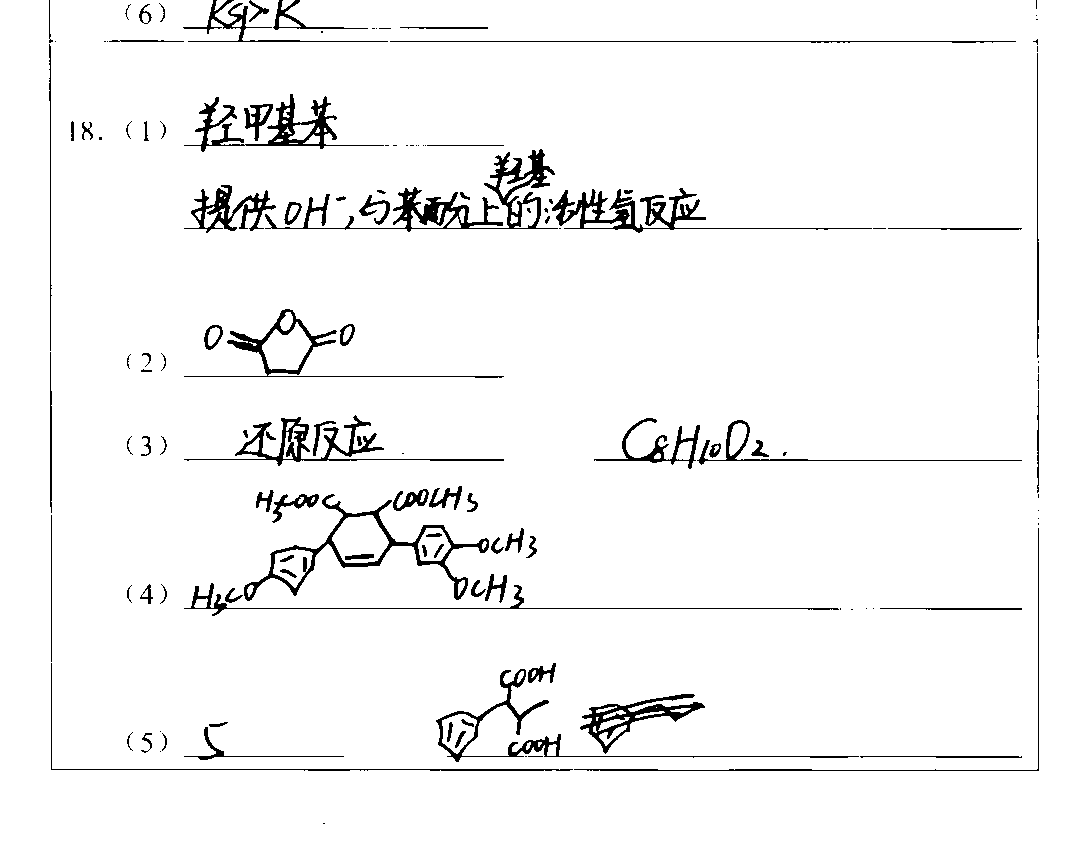 (6) Ksp>K
18. (1) 羟甲基苯
提供OH⁻,与苯酚上羟基的活性氢反应
O O O
(2)
(3) 还原反应 C₈H₁₀O₂.
H₃COOC COOCH₃
OCH₃
(4) H₃CO OCH₃
COOH
(5) 5 COOH